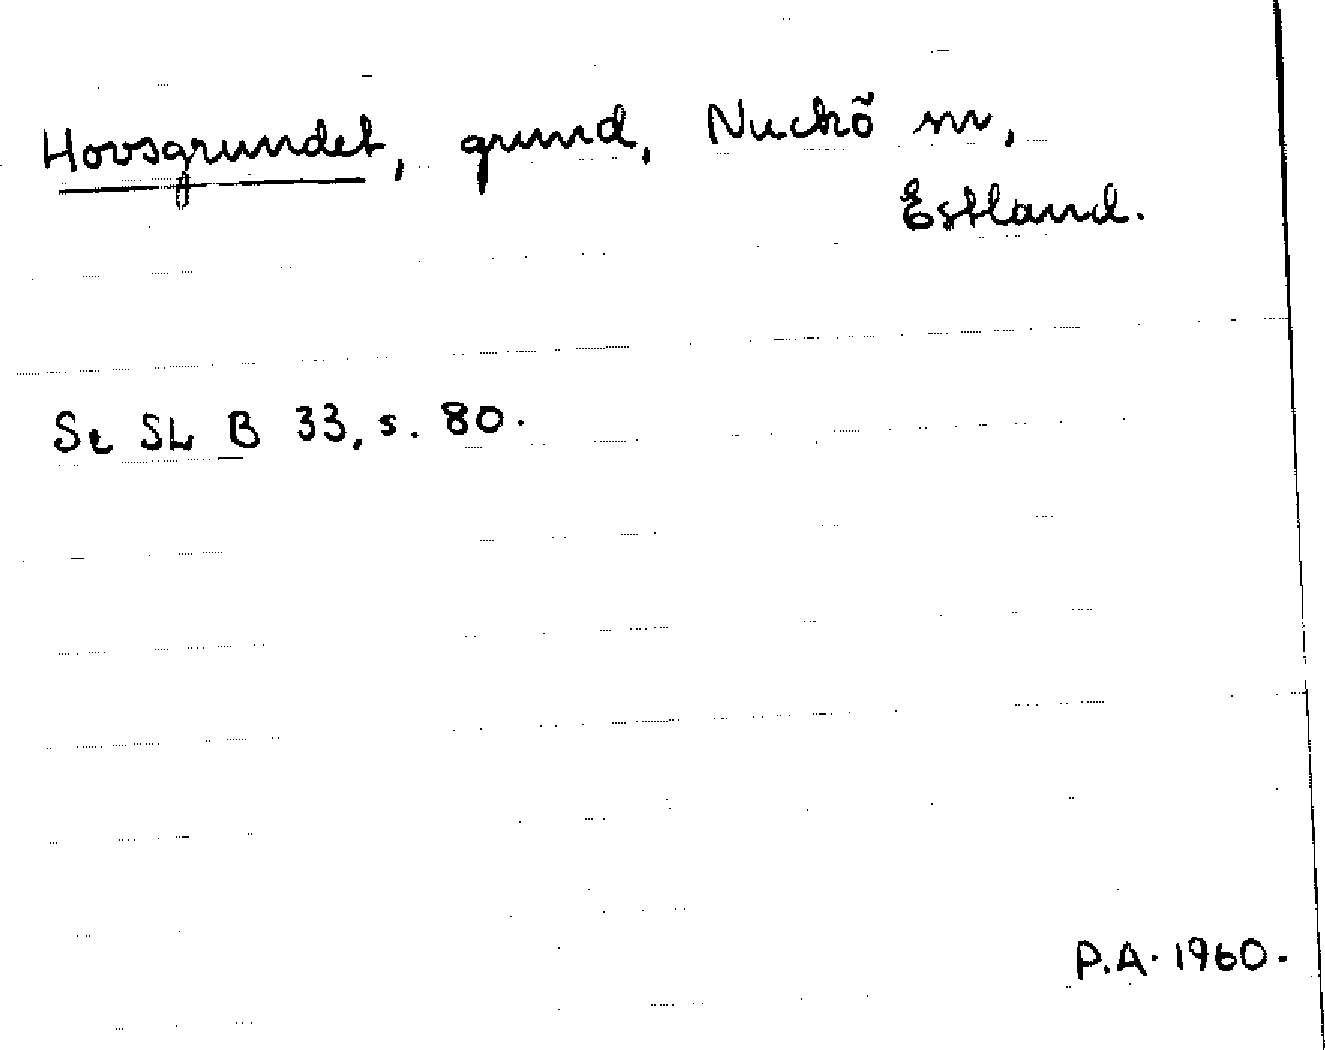 Hovsgrundet, grund, Nuckö sn,
Estland.
Se SL B 33, s. 80.
P.A. 1960.